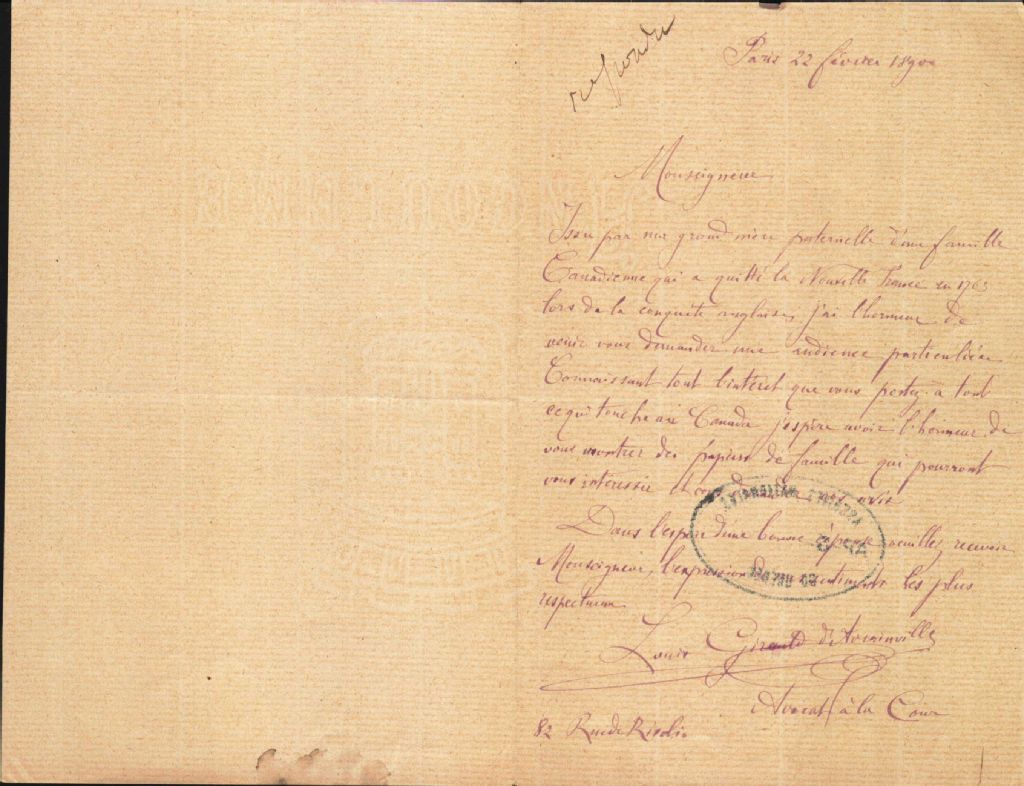 répondu
Paris 22 février 1890
Monseigneur
Issu par ma grand mère paternelle d'une famille
Canadienne qui a quitté la Nouvelle France en 1763
lors de la conquête anglaise, j'ai l'honneur de
venir vous demander une audience particulière
Connaissant tout l'intérêt que vous portez à tout
ce qui touche au Canada j'espère avoir l'honneur de
vous montrer des papiers de famille qui pourront
vous intéresser et avis
Dans l'espoir d'une bonne réponse veuillez recevoir
Monseigneur, l'expression de sentiments les plus
respectueux
Louis Girauld d'Avrainville
Avocat à la Cour
82 Rue de Rivoli